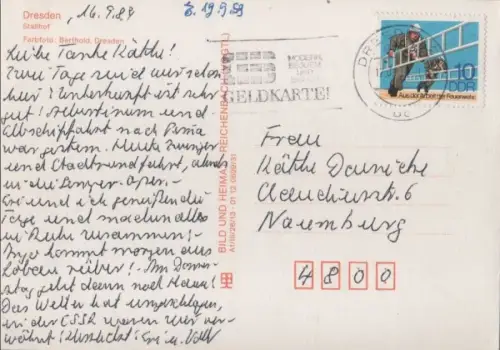 Dresden, 16.9.89
Stallhof
Farbfoto: Berthold, Dresden
B. 19.9.89
Liebe Tante Käthe!
Zwei Tage sind wir schon
hier! Unterkunft ist sehr
gut! Albertinum und
Elbschiffahrt nach Pirna
war gestern. Heute Zwinger
und Stadtrundfahrt, abends
in die Semper-Oper.-
und ich genießen die
Tage und machen alles
in Ruhe zusammen!
kommt morgen aus
Löbau rüber! Am Donners-
tag geht dann nach Haus!
Das Wetter hat umgeschlagen,
in der CSSR waren wir ver-
wöhnt! Herzlichst u.
BILD UND HEIMAT REICHENBACH (VOGTL)
MODERN
BEQUEM
UND
GELDKARTE!
10
DDR
Aus der Arbeit der Feuerwehr
Frau
Käthe
6
Naumburg
4800